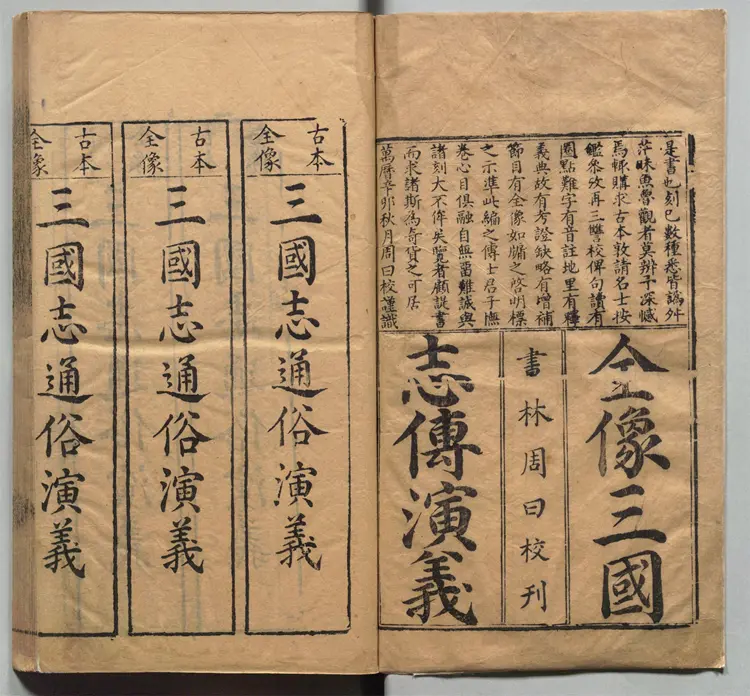 是書也刻已數種悉皆譌舛
茫昧魚魯觀者莫辨予深憾
焉輒購求古本敦請名士按
鑑參攷再三讐校俾句讀有
圈點難字有音註地里有釋
義典故有考證缺略有增補
節目有全像如牖之啓明標
之示準此編之傳士君子撫
卷心目俱融自無畱難誠與
諸刻大不侔矣覽者顧諟書
而求諸斯爲奇貨之可居
萬曆辛卯秋月周曰校謹識
全像三國
書林周曰校刊
志傳演義
古本
全像
三國志通俗演義
古本
全像
三國志通俗演義
古本
全像
三國志通俗演義